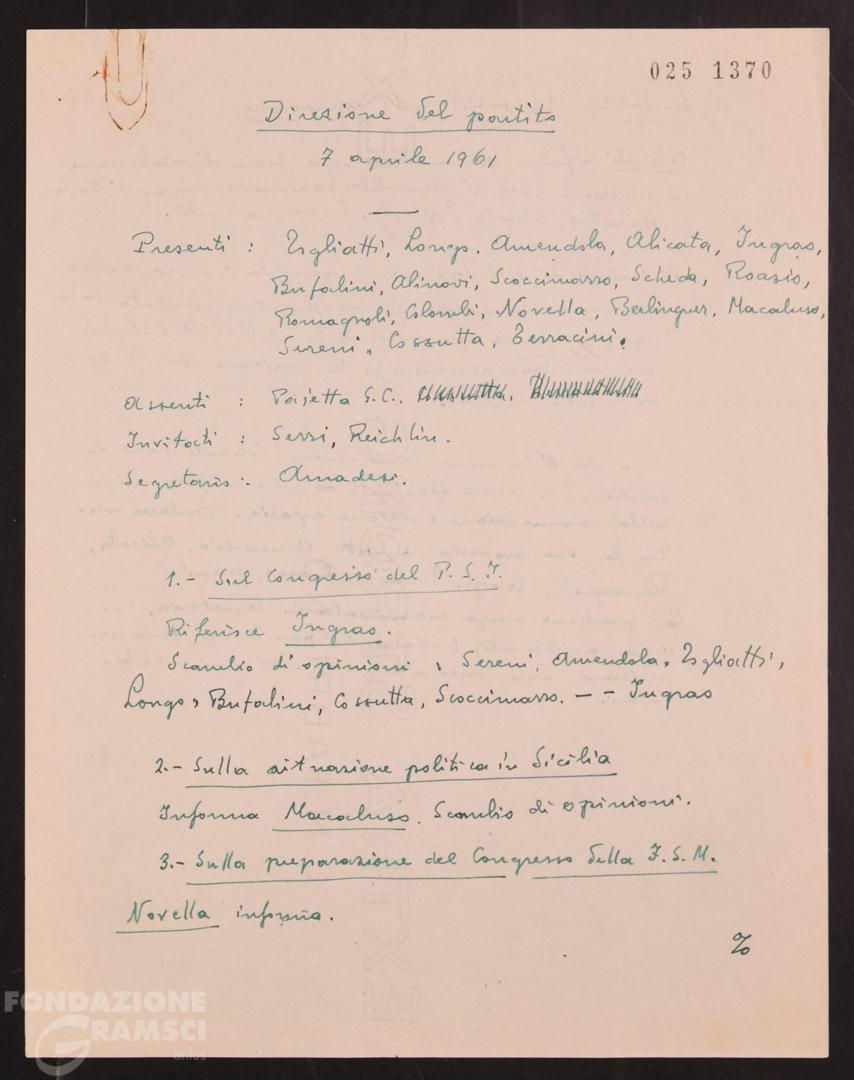 025 1370
Direzione del partito
7 aprile 1961
Presenti : Togliatti, Longo, Amendola, Alicata, Ingrao,
Bufalini, Alinovi, Scoccimarro, Scheda, Roasio,
Romagnoli, Colombi, Novella, Berlinguer, Macaluso,
Sereni, Cossutta, Terracini.
Assenti : Pajetta G.C.
Invitati : Serri, Reichlin.
Segretario : Amadesi.
1.- Sul Congresso del P.S.I.
Riferisce Ingrao.
Scambio di opinioni : Sereni, Amendola, Togliatti,
Longo, Bufalini, Cossutta, Scoccimarro. - - Ingrao
2.- Sulla situazione politica in Sicilia
Informa Macaluso. Scambio di opinioni.
3.- Sulla preparazione del Congresso della F.S.M.
Novella informa.
%
FONDAZIONE
GRAMSCI
onlus